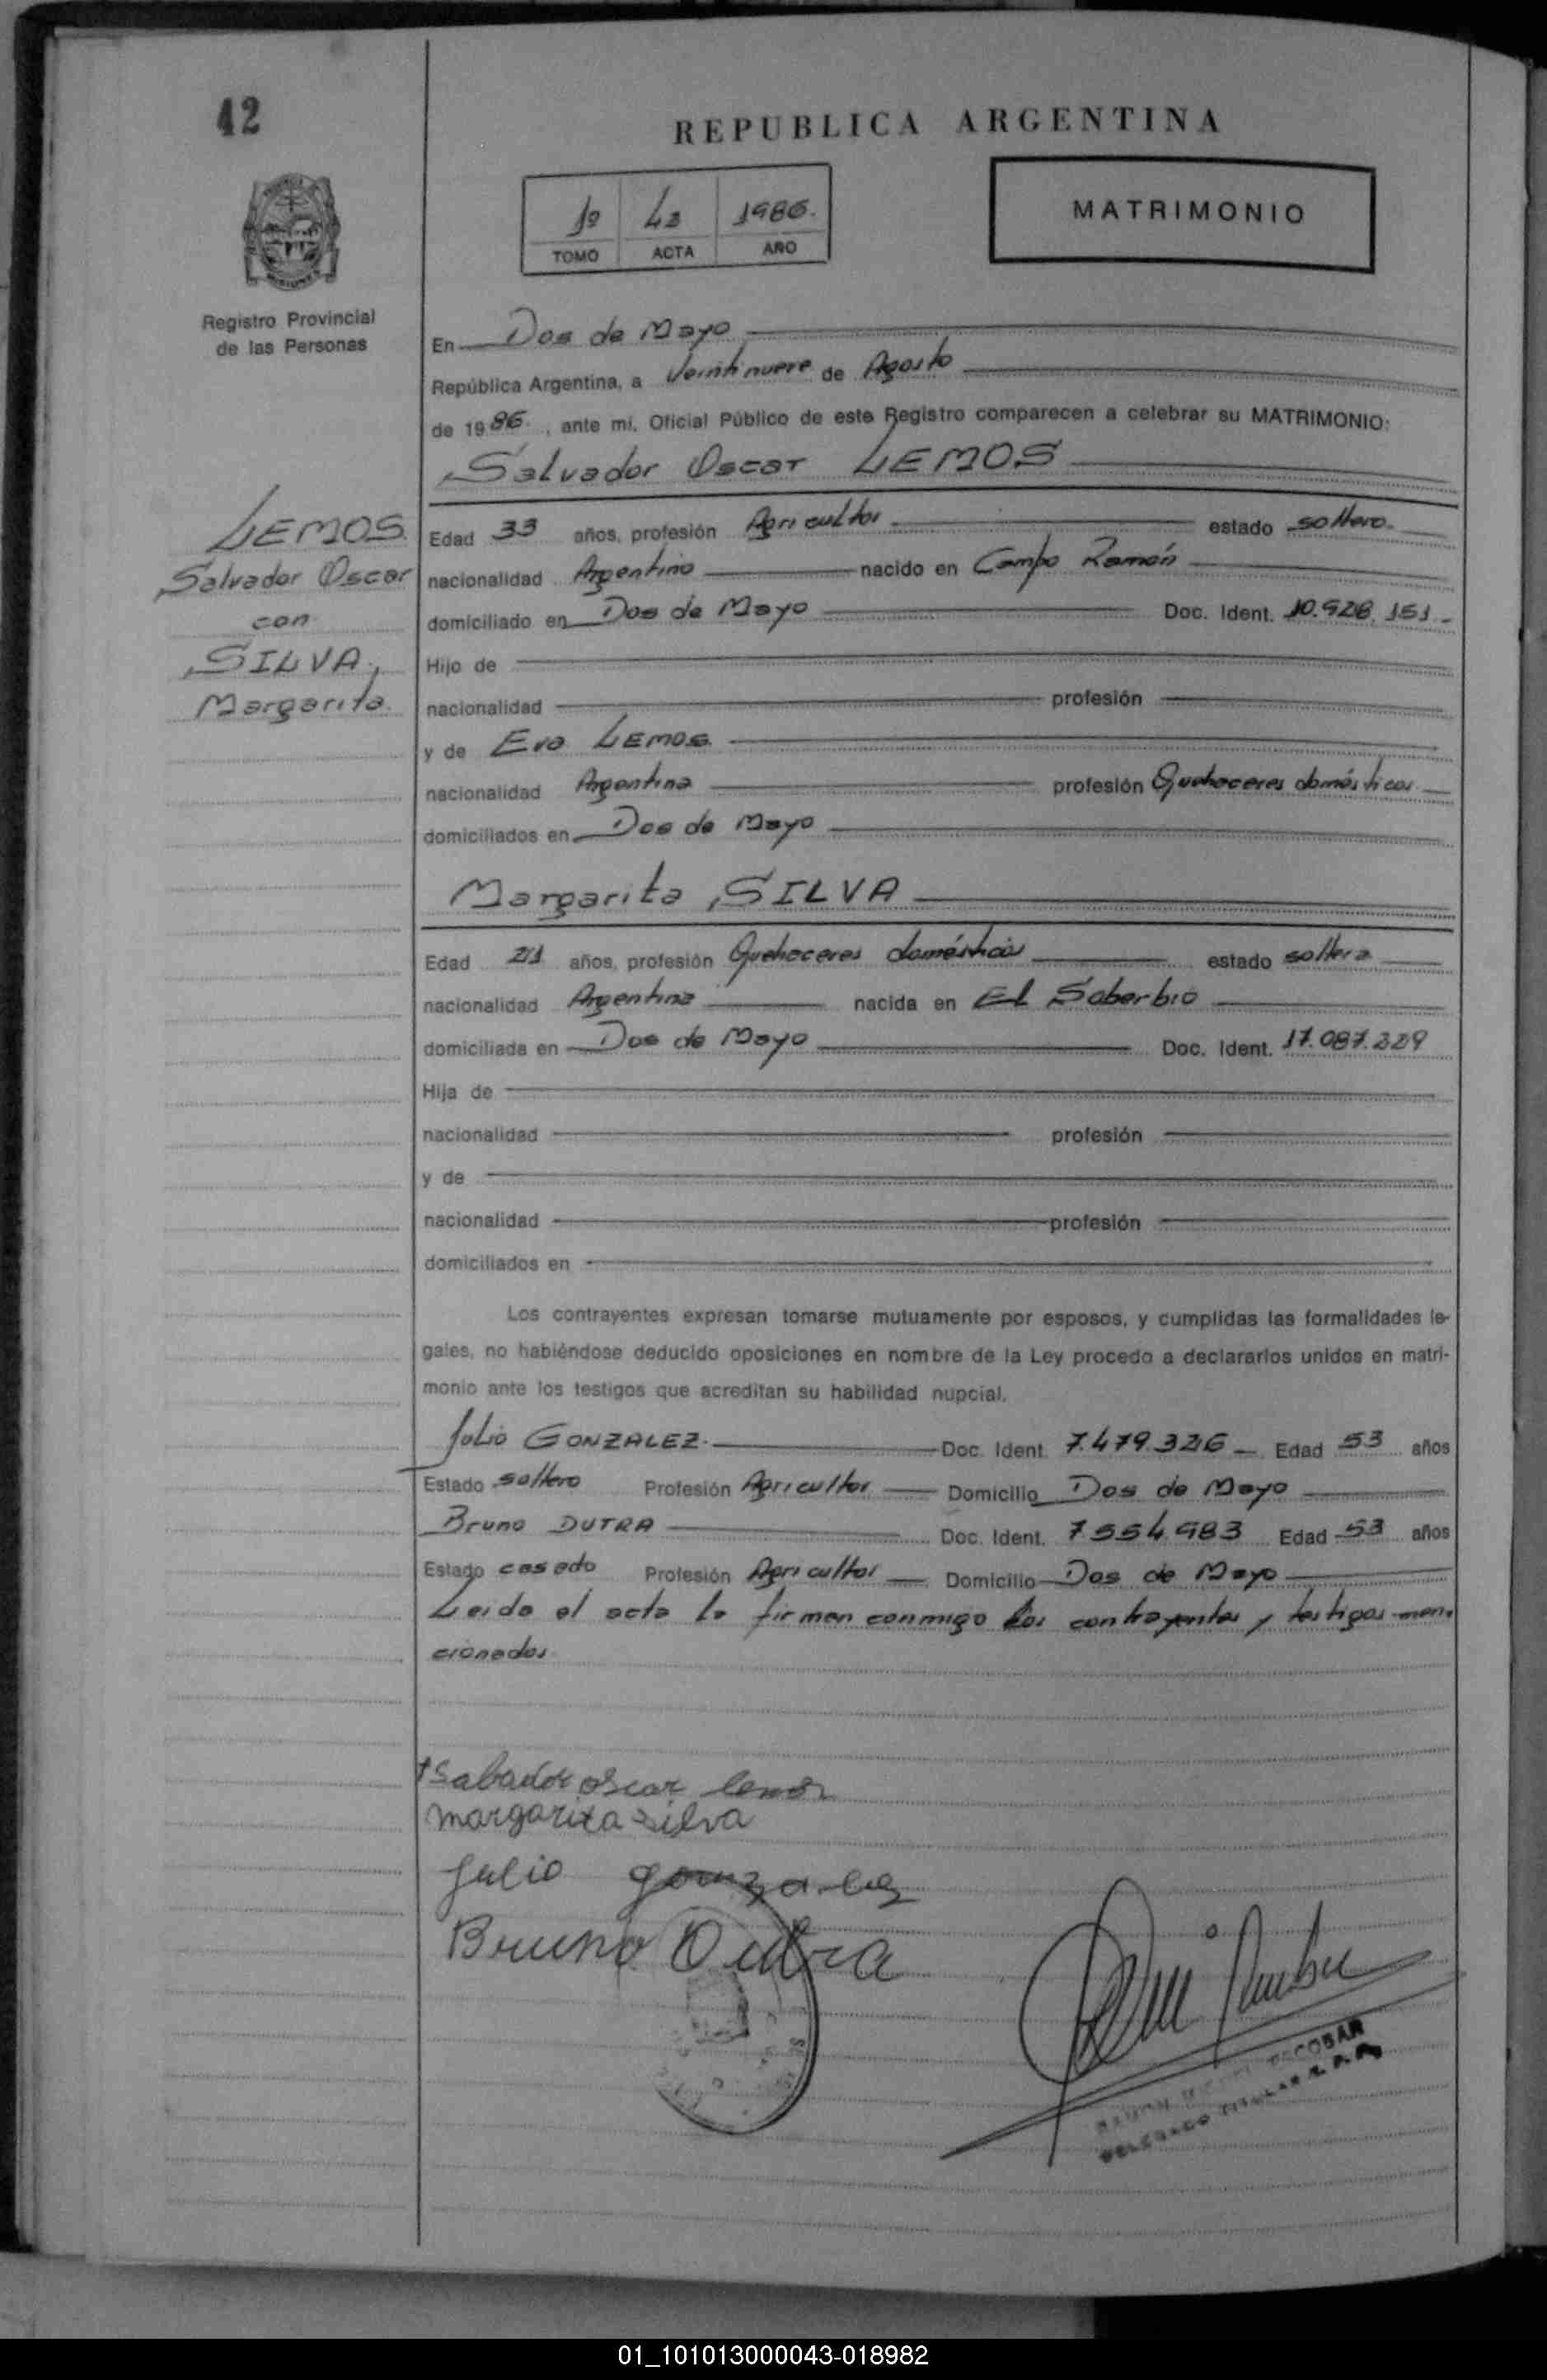 42
REPUBLICA ARGENTINA
1º 42 1986.
TOMO ACTA AÑO
MATRIMONIO
Registro Provincial
de las Personas
En Dos de Mayo
República Argentina, a Veintinueve de Agosto
de 1986. , ante mí, Oficial Público de este Registro comparecen a celebrar su MATRIMONIO:
Salvador Oscar LEMOS
LEMOS.
Salvador Oscar
con
SILVA,
Margarita.
Edad 33 años, profesión Agricultor estado soltero.
nacionalidad Argentino nacido en Campo Ramón
domiciliado en Dos de Mayo Doc. Ident. 10.928.151.-
Hijo de
nacionalidad profesión
y de Eva LEMOS.
nacionalidad Argentina profesión Quehaceres domésticos
domiciliados en Dos de Mayo
Margarita SILVA
Edad 21 años, profesión Quehaceres domésticos estado soltera
nacionalidad Argentina nacida en El Soberbio
domiciliada en Dos de Mayo Doc. Ident. 17.087.229
Hija de
nacionalidad profesión
y de
nacionalidad profesión
domiciliados en
Los contrayentes expresan tomarse mutuamente por esposos, y cumplidas las formalidades le-
gales, no habiéndose deducido oposiciones en nombre de la Ley procedo a declararlos unidos en matri-
monio ante los testigos que acreditan su habilidad nupcial.
Julio GONZALEZ. Doc. Ident. 7.479.326 Edad 53 años
Estado soltero Profesión Agricultor Domicilio Dos de Mayo
Bruno DUTRA Doc. Ident. 7554.983 Edad 53 años
Estado casado Profesión Agricultor Domicilio Dos de Mayo
Leida el acta la firman conmigo los contrayentes y testigos men-
cionados
Sabador oscar lemos
margarita silva
Julio gonzalez
Bruno Dutra
ESCOBAR
DELEGADO TITULAR R. P. P.
01_101013000043-018982